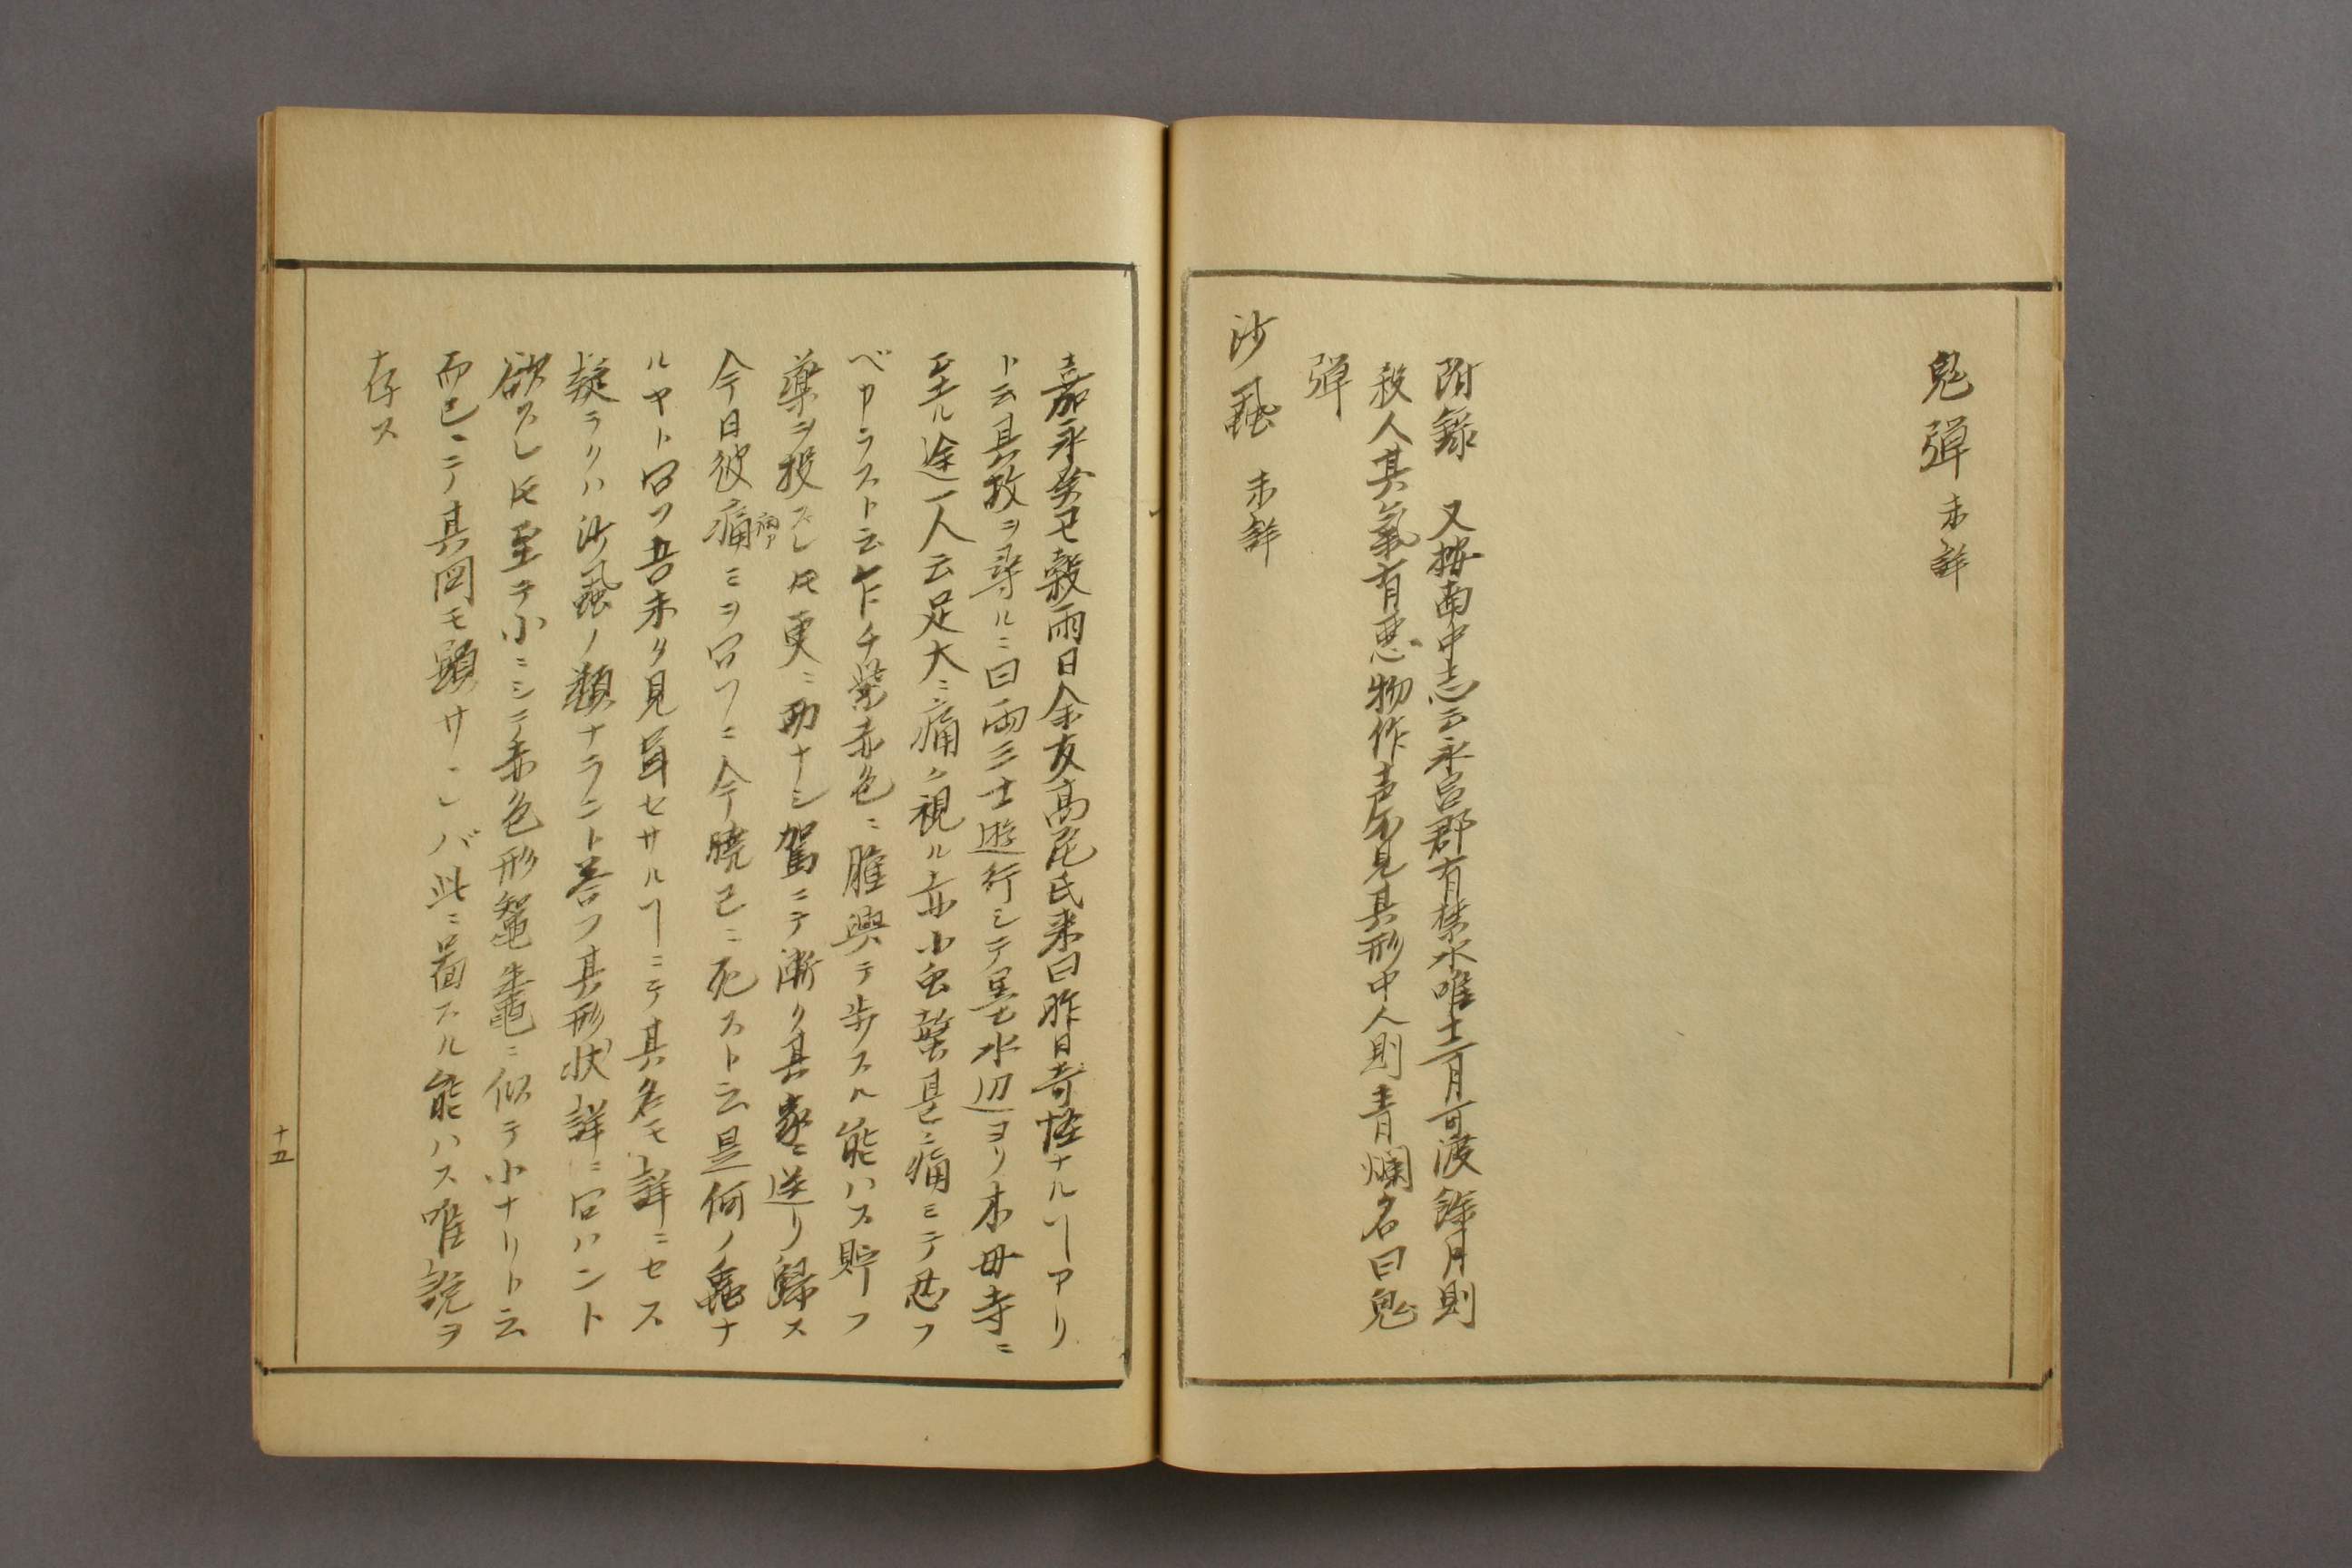 鬼弾 未詳
附録 又按南中志云永昌郡有禁水唯十一二月可渡餘月則
殺人其氣有悪物作声不見其形中人則青爛名曰鬼
弾
沙蝨 未詳
嘉永癸丑穀雨日余友高尾氏来曰昨日奇怪ナルヿアリ
ト云其故ヲ尋ルニ曰両三士遊行シテ墨水辺ヨリ木母寺ニ
至ル途一人云足大ニ痛ク視ル亦小虫螫甚ニ痛ミテ忍フ
ベカラスト云乍チ紫赤色ニ腫興テ歩スル能ハス貯フ
薬ヲ投スレ𪜈更ニ功ナシ駕ニテ漸ク其家ニ送リ歸ス
今日彼痛ミヲ問フニ今暁已ニ死スト云是何ノ蟲ナ
ルヤト問フ吾未タ見聞セサルヿニテ其名モ詳ニセス
疑ラクハ沙蝨ノ類ナラント答フ其形状詳ニ問ハント
欲スレ𪜈至テ小ニシテ赤色形鼅鼄ニ似テ小ナリト云
而已ニテ其図モ顕サレバ此ニ著スル能ハス唯説ヲ
存ス
十五